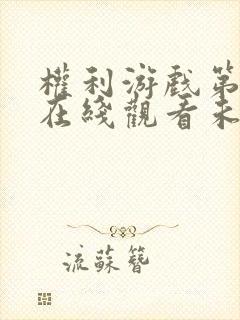 權利游戲第
在綫觀看未
流蘇簪